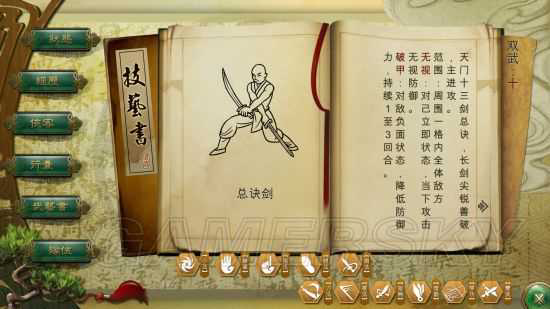 狀態
經歷
俠客
行囊
技藝書
隊伍
技藝書
总诀剑
双武·十
天门十三剑总诀，长剑尖锐善破
，主进攻。
范围：周围一格内全体敌方
无视：对己立即状态，当下攻击
无视防御。
破甲：对敌负面状态，降低防御
力，持续1至3回合。
GAMERSKY